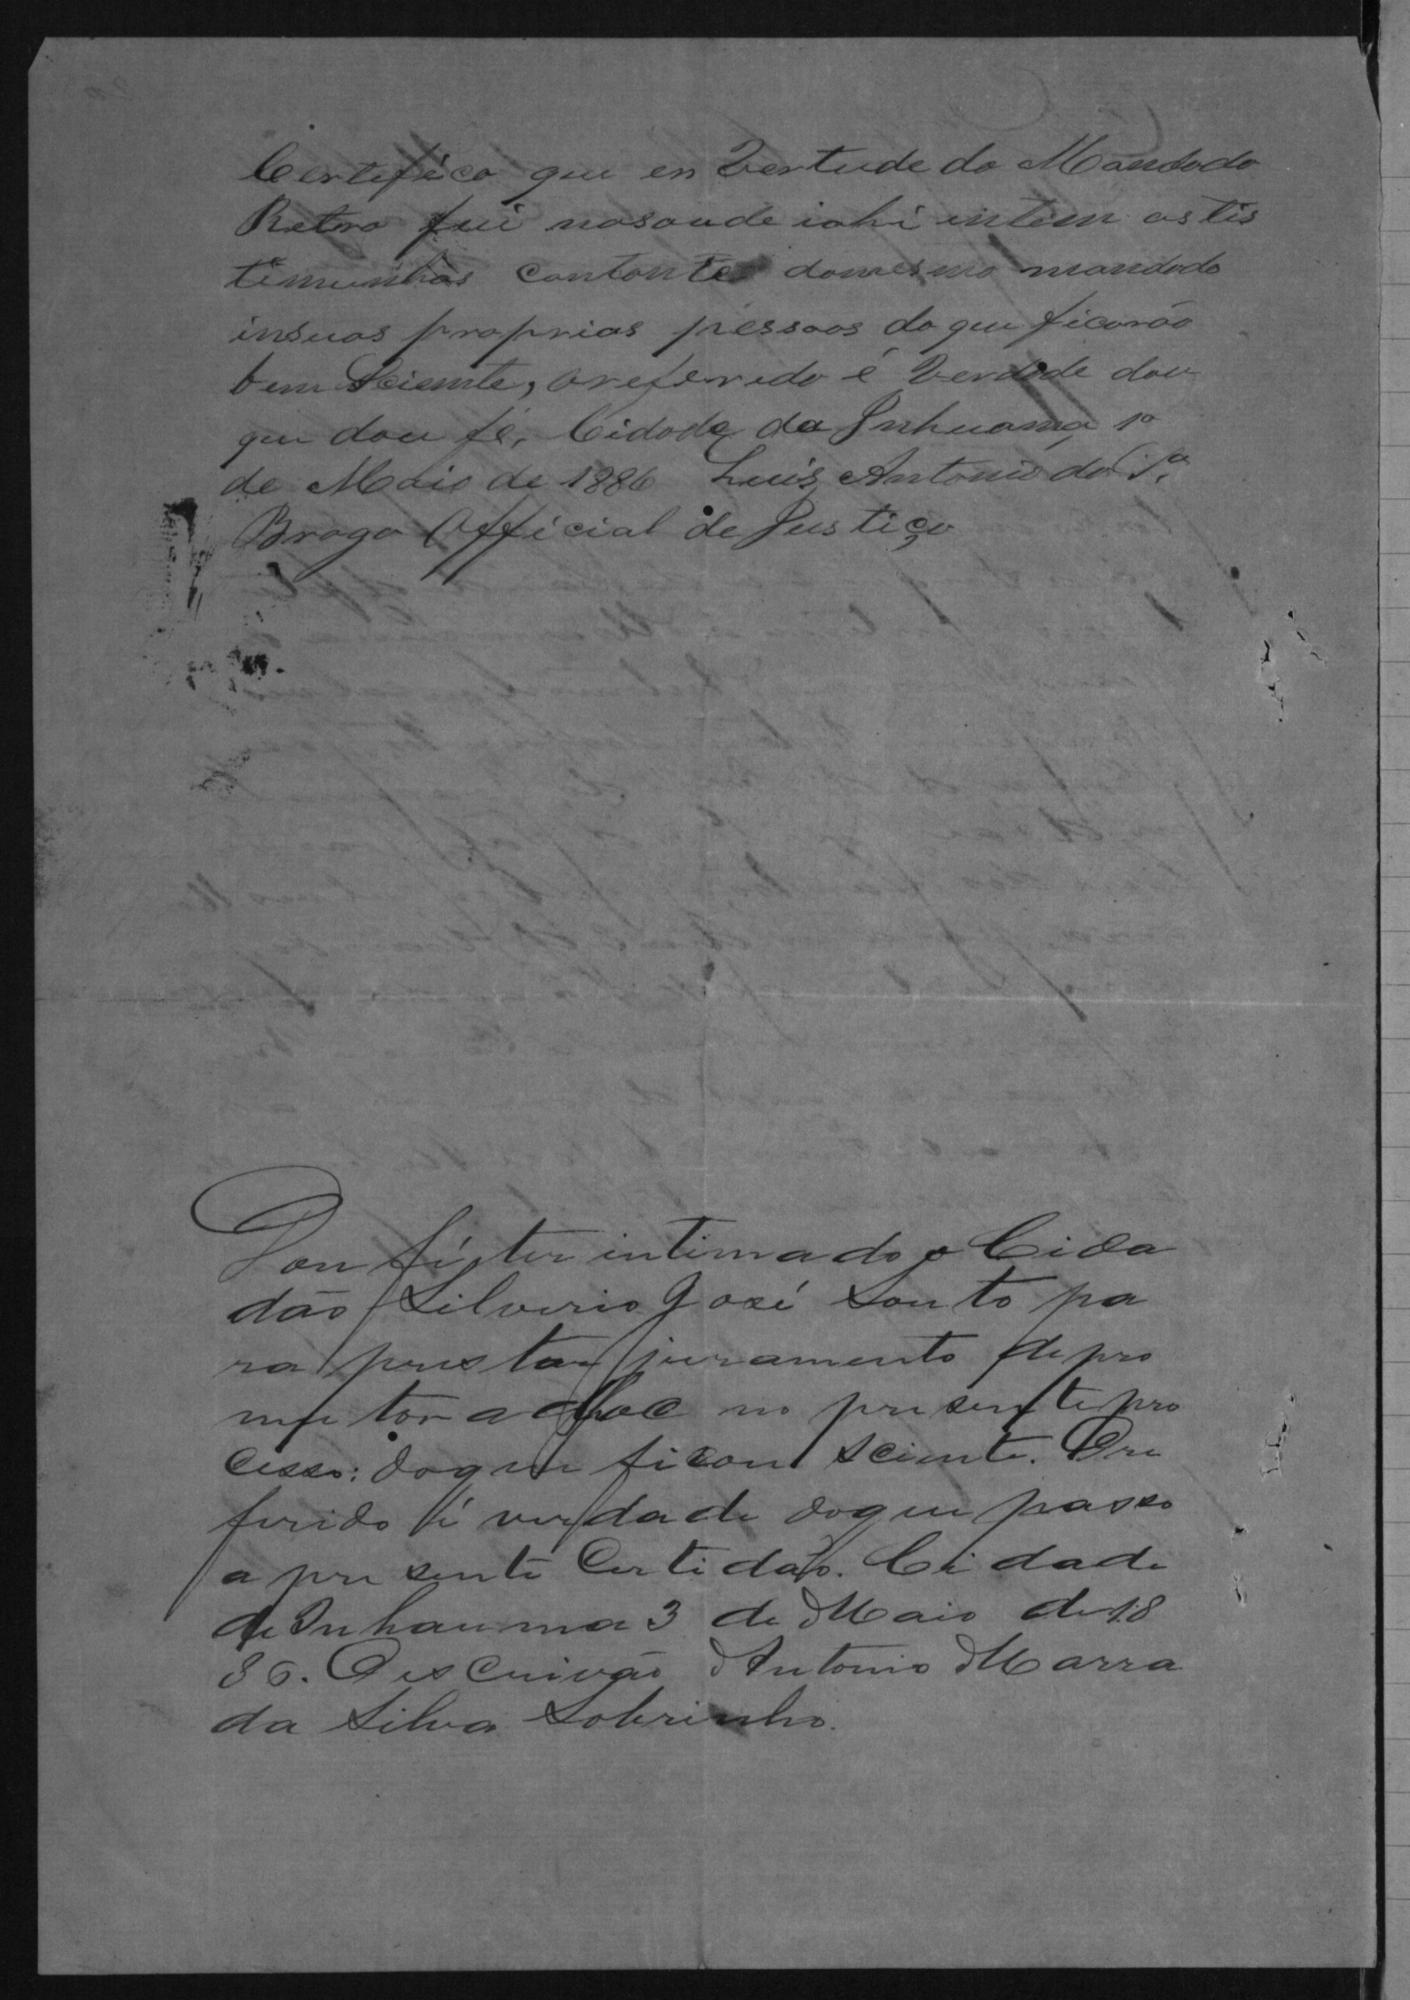 Certefico que en Vertude do Mandado
Retro fui nasaude iahi intem as tis
temunhas contante domesmo mandado
insuas proprias pessoas do que ficarão
bem Sciente, oreferedo é Verdade dou
que dou fé, Cidade da Inhuama, 1º
de Maio de 1886 Luis Antonio da Sª
Braga Official de Justiça
Dou fé, ter intimado o Cida
dão Silverio José Souto pa
ra prestar juramento de pro
mutor adhoc no presente pro
cesso: doque ficou sciente. Ore
ferido é verdade doque passo
a presente Certidão. Cidade
de Inhauma 3 de Maio de 18
86. O escrivão Antonio Marra
da Silva Sobrinho.